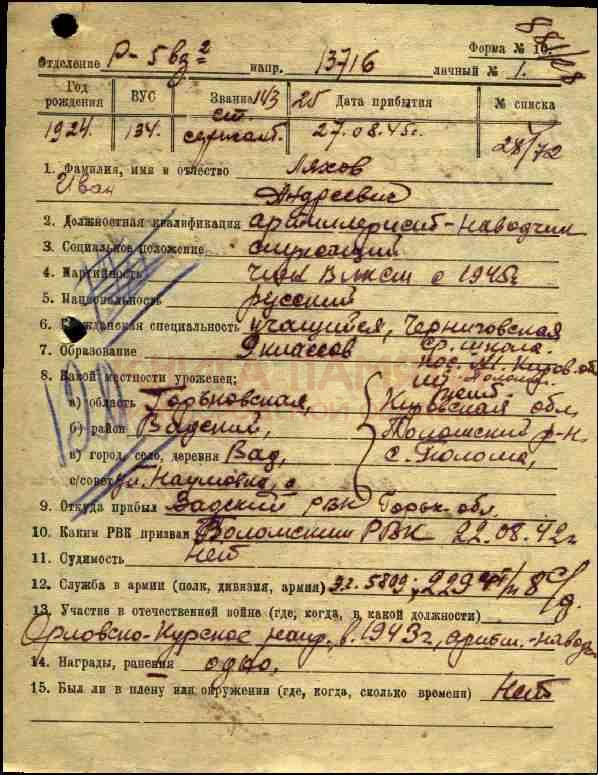 Форма № 16.
Отделение Р- 5 вз= 2 напр. 13716 личный № 1.
Год рождения ВУС Звание Дата прибытия № списка
1924. 134. ст. сержант. 27.08.45г. 28/72
1. Фамилия, имя и отчество Ляхов
Иван Андреевич
2. Должностная квалификация артиллерист-наводчик
3. Социальное положение служащий
4. Партийность член ВЛКСМ с 1945г
5. Национальность русский
6. Гражданская специальность учащийся, Черниговская
7. Образование 9 классов ср. школа.
8. Какой местности уроженец:
а) область Горьковская, Кировская обл,
б) район Вадский, Поломский р-н.
в) город, село, деревня Вад, с. Полома,
с/совет
9. Откуда прибыл Вадский РВК Горьк. обл.
10. Каким РВК призван Поломским РВК 22.08.42г
11. Судимость Нет
12. Служба в армии (полк, дивизия, армия) 229
13. Участие в отечественной войне (где, когда, в какой должности)
Орловско-Курское напр. в 1943г,
14. Награды, ранения одно,
15. Был ли в плену или окружении (где, когда, сколько времени) Нет